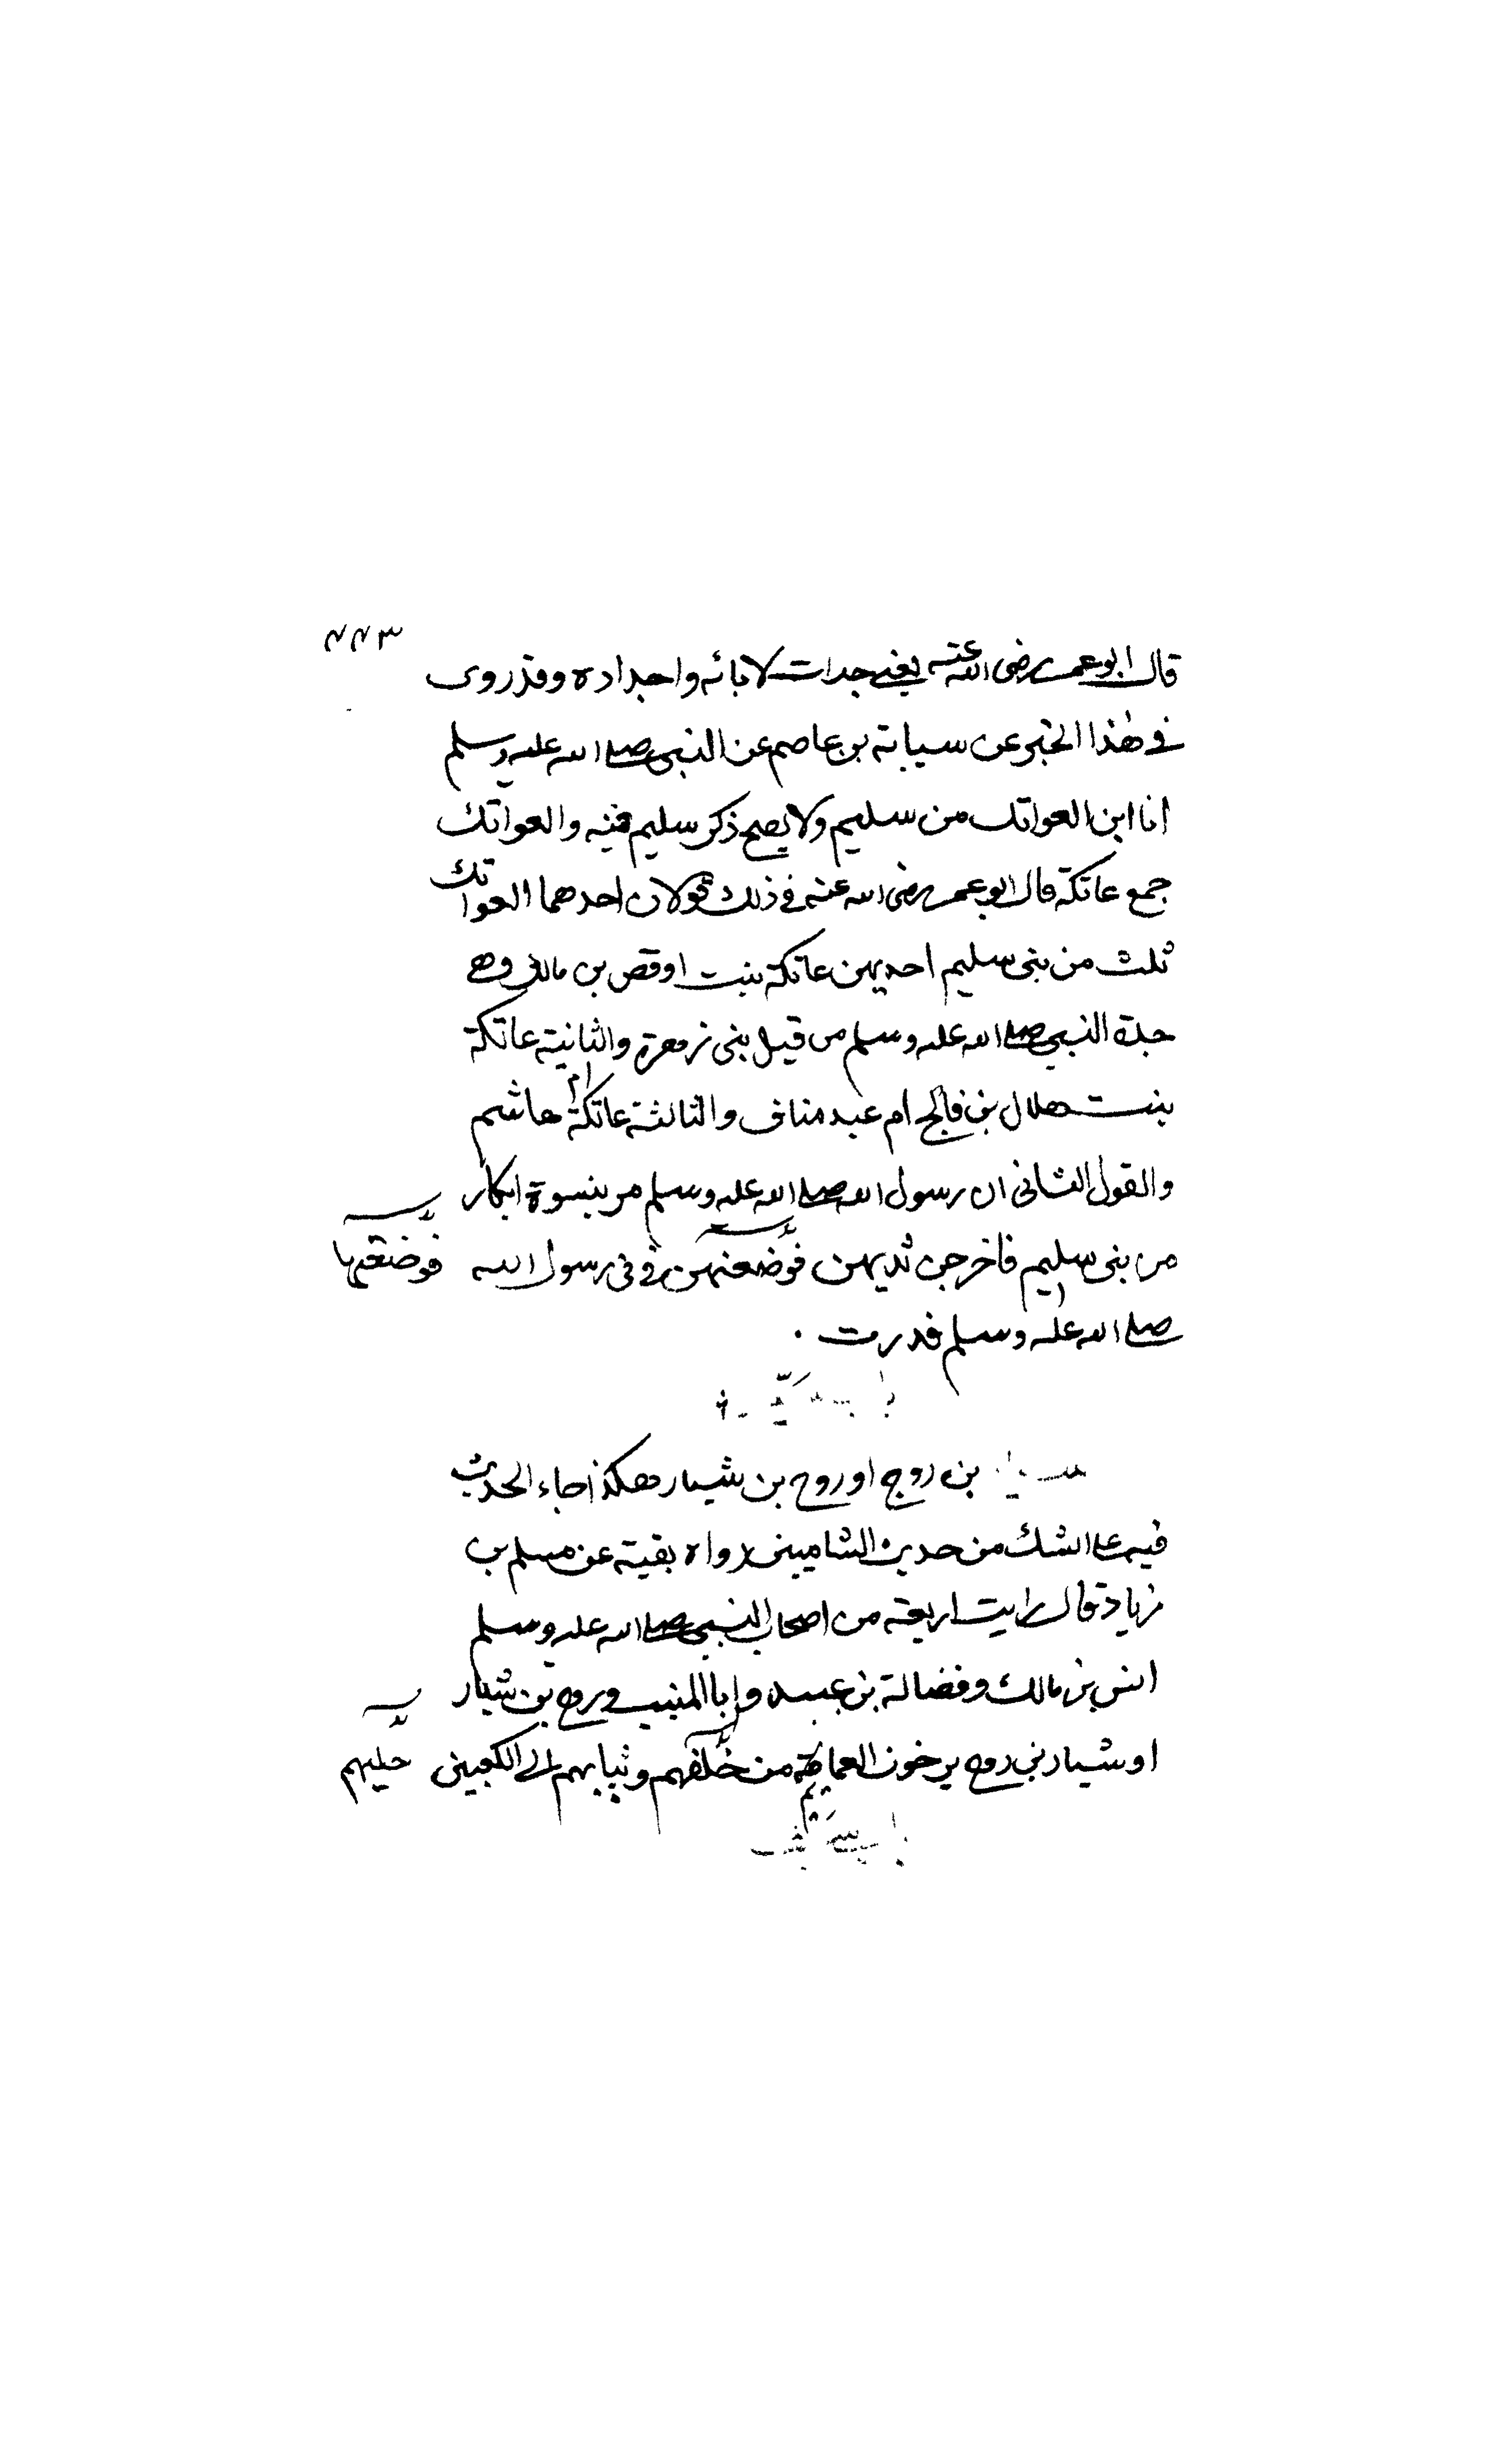 ٤٤٣
قال ابو عمر رضى الله عنه يعنى جدات لابائه واجداده وقد روى
فى هذا الخبر عن سيابة بن عاصم عن النبى صلى الله عليه وسلم
انا ابن العواتك من سليم ولا يصح ذكر سليم فيه والعواتك
جمع عاتكة قال ابو عمر رضى الله عنه فى ذلك قولان احدهما العواتك
ثلث من بنى سليم احديهن عاتكة بنت اوقص بن مالك وهى
جدة النبى صلى الله عليه وسلم من قبل بنى زهرة والثانية عاتكة
بنت هلال بن فالج ام عبد مناف والثالثة عاتكة ام هاشم
والقول الثانى ان رسول الله صلى الله عليه وسلم مر بنسوة ابكار
من بنى سليم فاخرجن ثديهن فوضعنهن فى فى رسول الله فوضعنها
صلى الله عليه وسلم فدرت .
بن روح او روح بن شيبار هكذا جاء الحديث
فيه على الشك من حديث الشاميين رواه بقية عن مسلم بن
زياد قال رايت اربعة من اصحاب النبى صلى الله عليه وسلم
انس بن مالك وفضالة بن عبيد وابا المنيب وروح بن شيبار
او شيبار بن روح يرخون العمائم من خلفهم وثيابهم الى الكعبين
باب